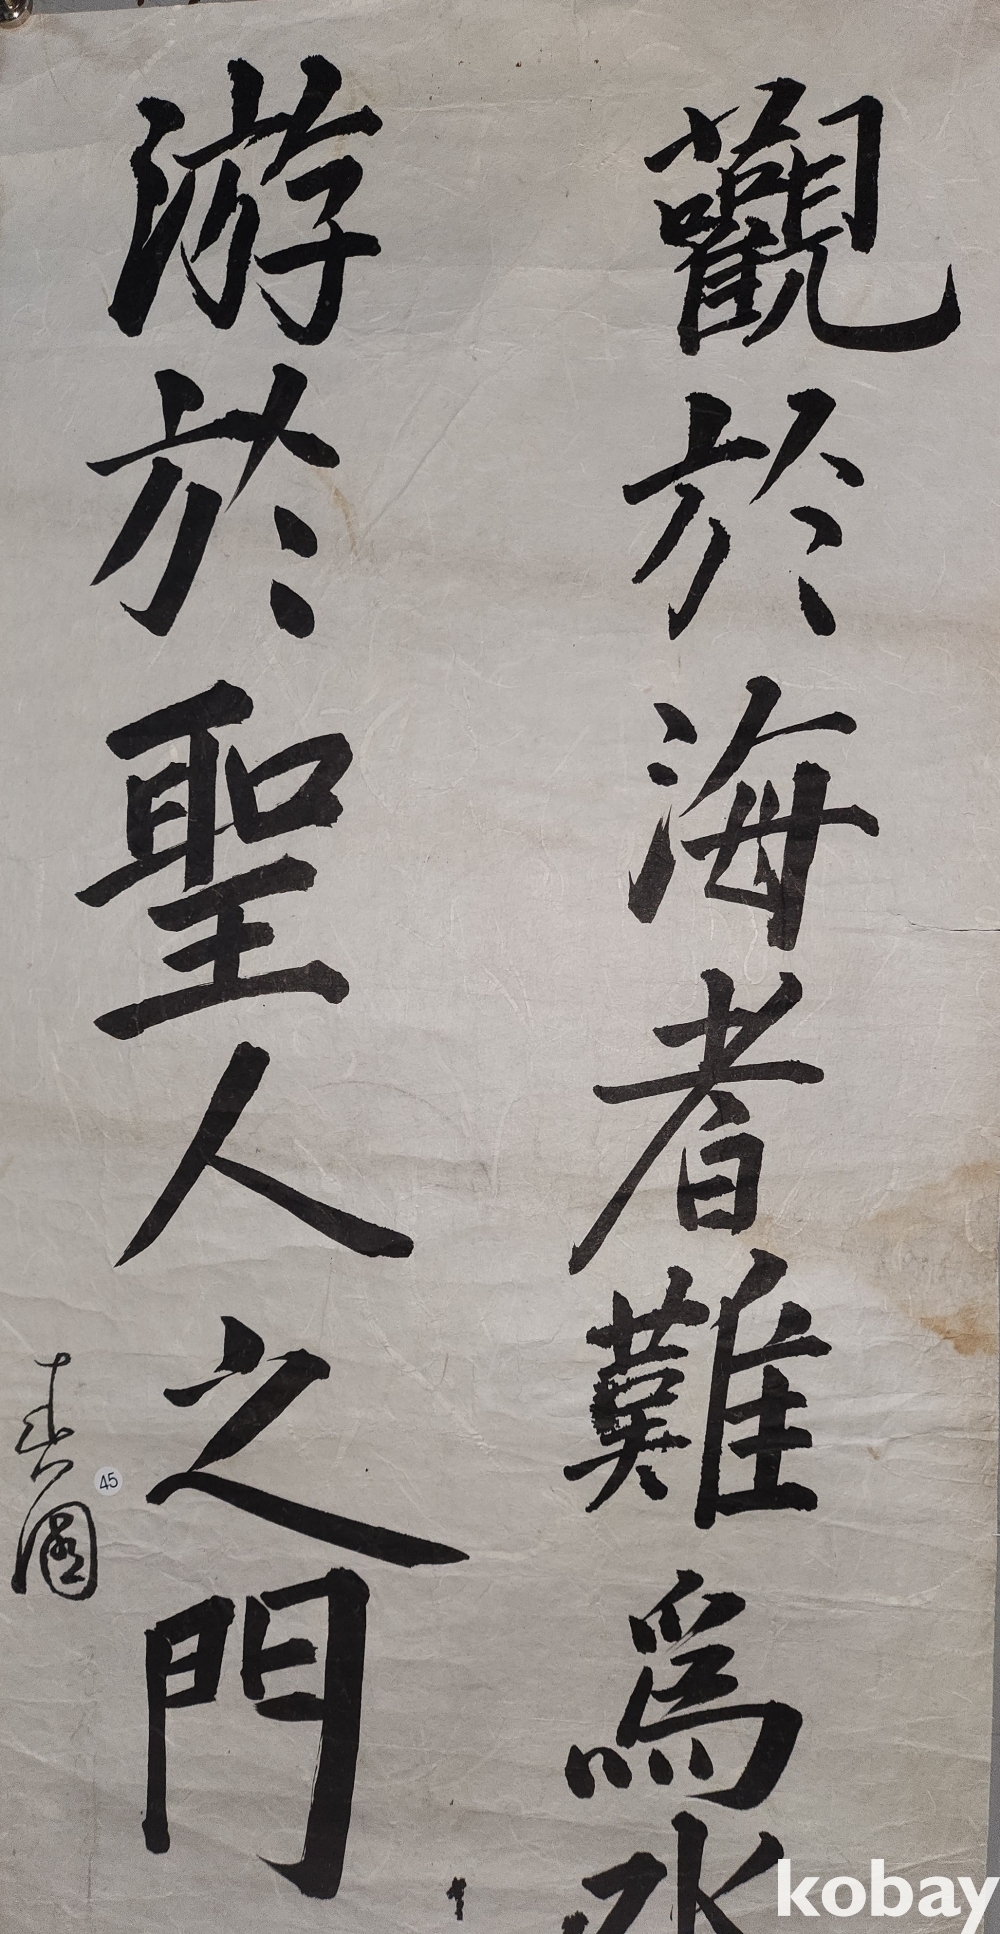 觀於海者難爲水
游於聖人之門
春園
45
kobay